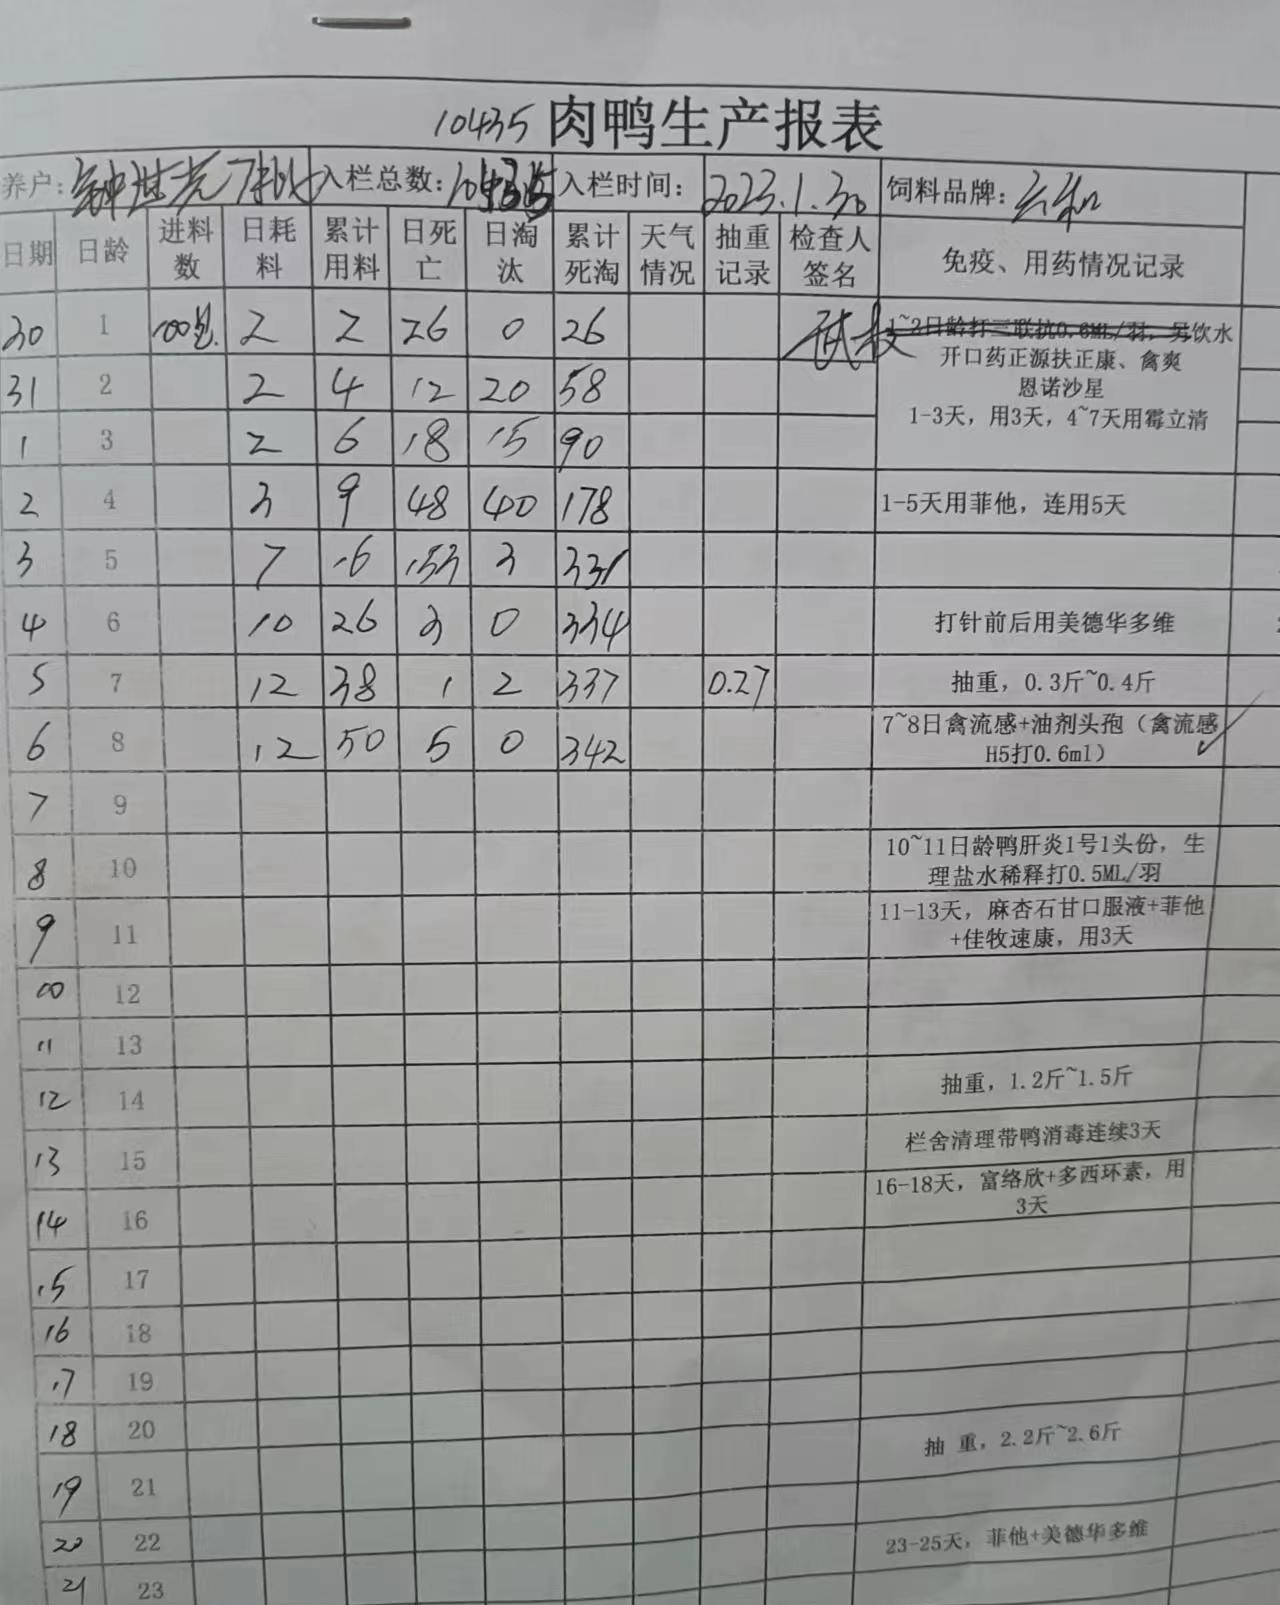 10435 肉鸭生产报表
养户: 入栏总数: 10435 入栏时间: 2023.1.30 饲料品牌:
日期 日龄 进料数 日耗料 累计用料 日死亡 日淘汰 累计死淘 天气情况 抽重记录 检查人签名 免疫、用药情况记录
30 1 100包 2 2 26 0 26 1~2日龄打三联抗0.6ML/羽, 另饮水
开口药正源扶正康、禽爽
恩诺沙星
31 2 2 4 12 20 58
1-3天, 用3天, 4~7天用霉立清
1 3 2 6 18 15 90
2 4 3 9 48 40 178 1-5天用菲他, 连用5天
3 5 7 16 153 3 331
4 6 10 26 3 0 334 打针前后用美德华多维
5 7 12 38 1 2 337 0.27 抽重, 0.3斤~0.4斤
6 8 12 50 5 0 342 7~8日禽流感+油剂头孢（禽流感
H5打0.6ml）
7 9
8 10 10~11日龄鸭肝炎1号1头份, 生
理盐水稀释打0.5ML/羽
9 11 11-13天, 麻杏石甘口服液+菲他
+佳牧速康, 用3天
10 12
11 13
12 14 抽重, 1.2斤~1.5斤
13 15 栏舍清理带鸭消毒连续3天
14 16 16-18天, 富络欣+多西环素, 用
3天
15 17
16 18
17 19
18 20 抽 重, 2.2斤~2.6斤
19 21
20 22 23-25天, 菲他+美德华多维
21 23